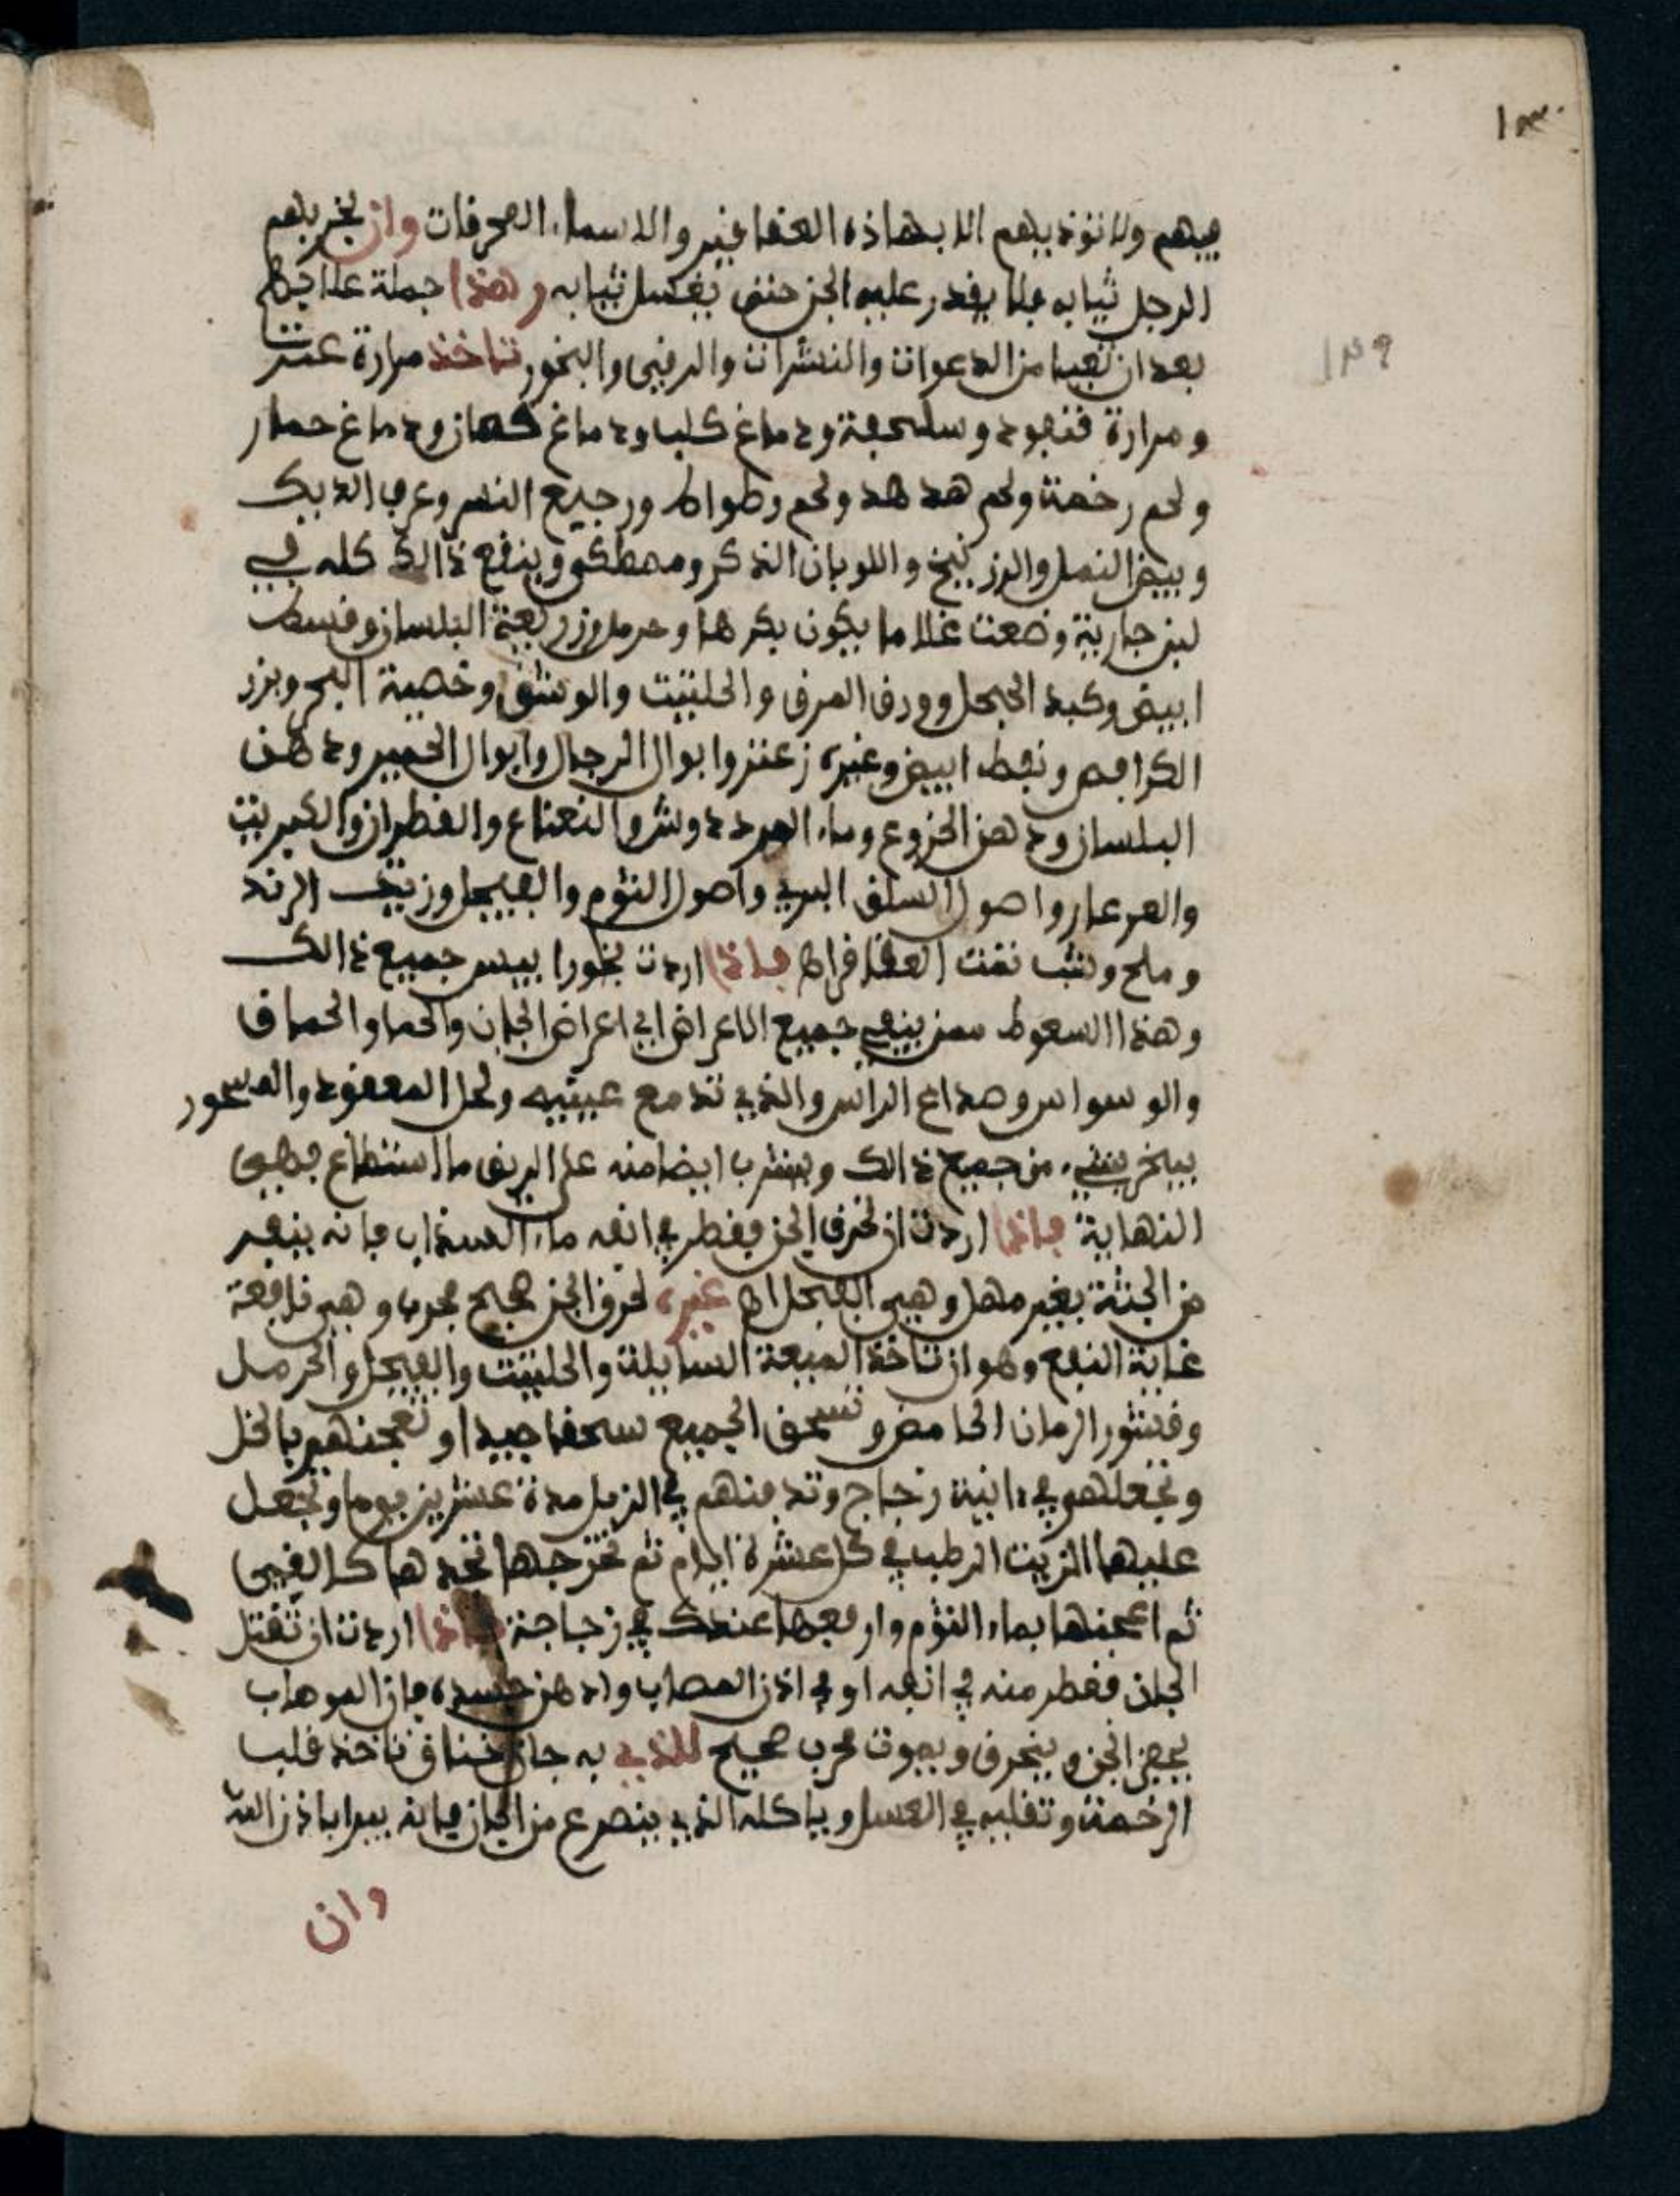 ١٣٠
فيهم ولا تؤذيهم الا بهاذه العقاقير والاسماء المحرقات وان بخر بهم
الرجل ثيابه فلا يقدر عليه الجن حتى يغسل ثيابه وهذا جملة علاجهم
١٢٩
بعد ان تعيا من الدعوات والنشرات والرقى والبخور تاخذ مرارة عنز
ومرارة قنفود وسلحفة ودماغ كلب ودماغ ودماغ حمار
ولحم رخمة ولحم هدهد ولحم وطواط ورجيع النسر وعرف الديك
وبيض النمل والزرنيخ واللوبان الذكر ومصطكى وينقع ذالك كله في
لبن جارية وضعت غلاما يكون بكرها وحرمل وزريعة البلسان وقسط
ابيض وكبد الحجل وورق الصرف والحلتيت والوشق وخصية البحر وبزر
الكرافص ونفط ابيض وغيره زعتر وابوال الرجال وابوال الحمير ودهن
البلسان ودهن الخروع وماء النعناع والقطران والكبريت
والعرعار واصول السلق البري واصول الثوم والفيجل وزيت الرند
وملح وشب نقت العقاقر اهـ فاذا اردت بخورا يبس جميع ذالك
وهذا السعوط ممن ينفع جميع الاعراض اي اعراض الجان والحما والحماق
والوسواس وصداع الراس والذي تدمع عينيه ولحل المعقود والمسحور
يبخر بشيء من جميع ذالك ويشرب ايضا منه على الريق ما استطاع فهي
النهاية فاذا اردت ان تحرق الجن فقطر في انفه ماء السذاب فانه ينفر
من الجثة بغير مهل وهي الفيجل اهـ غيره لحرق الجن صحيح مجرب وهي نافعة
غاية النفع وهو ان تاخذ الميعة السايلة والحلتيت والفيجل والحرمل
وقشور الرمان الحامض وتسحق الجميع سحقا جيدا وتعجنهم بالخل
وتجعلهم في انية زجاج وتدفنهم في الزبل مدة عشرين يوما وتجعل
عليها الزيت الرطب في كل عشرة ايام ثم تخرجها تجدها كالقيي
ثم اعجنها بماء الثوم وارفعها عندك في زجاجة فاذا اردت ان تقتل
الجان فقطر منه في انفه او في اذن المصاب وادهن جسده فان
الجن وينحرق ويموت مجرب صحيح للذي به جان خناق تاخذ قلب
الرخمة وتقليه في العسل وياكله الذي ينصرع من الجان فانه يبرا باذن الله
وان